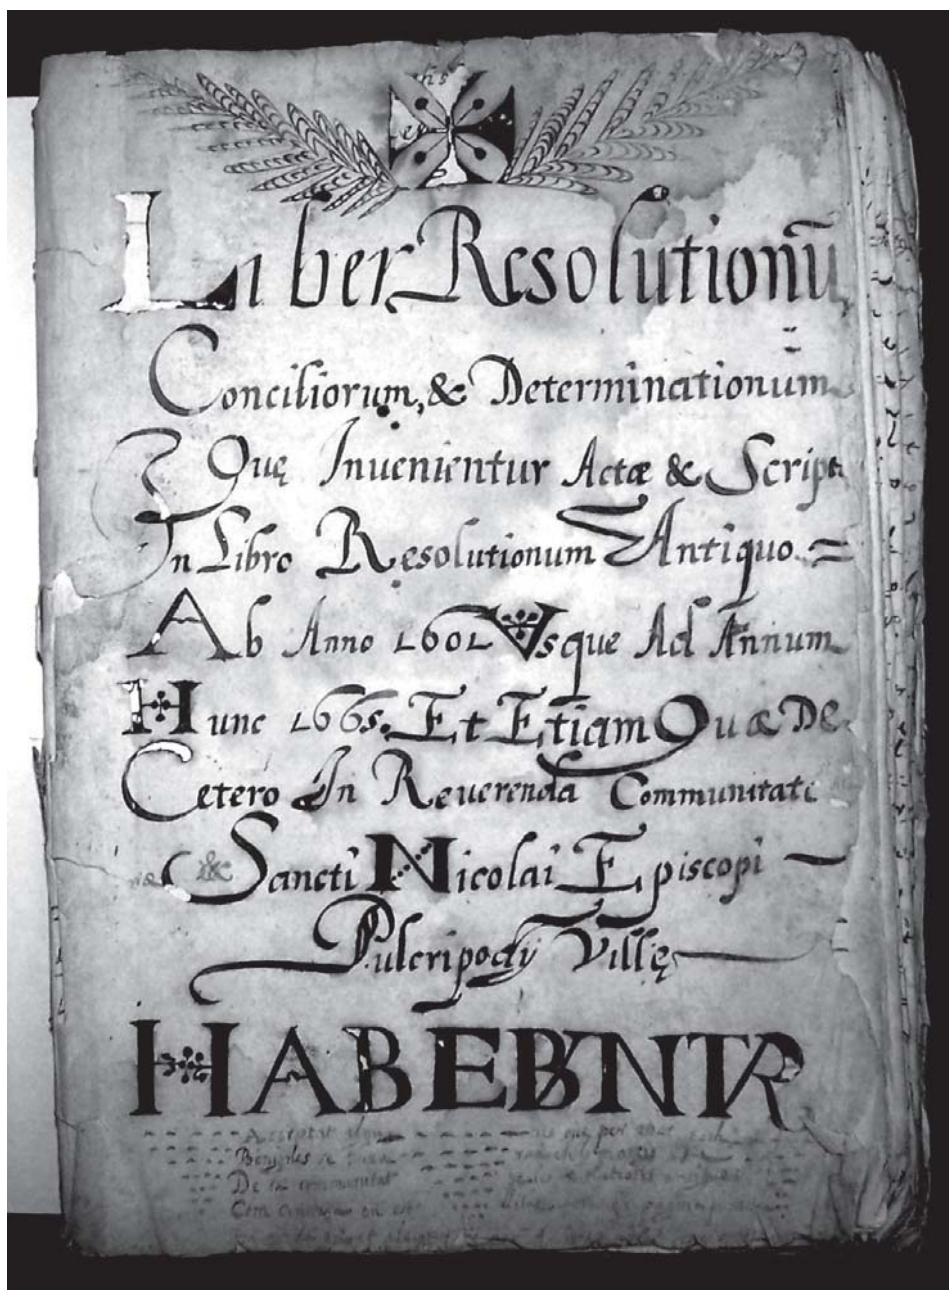 Liber Resolutionū
Conciliorum, & Determinationum
Quę Inuenientur Actæ & Scripte
In Libro Resolutionum Antiquo =
Ab Anno 1601 Vsque Ad Annum
Hunc 1665. Et Etiam Quæ De
Cetero In Reuerenda Communitate
& Sancti Nicolai Episcopi
Pulcripodij Villę
HABEBUNTUR
De la communitat